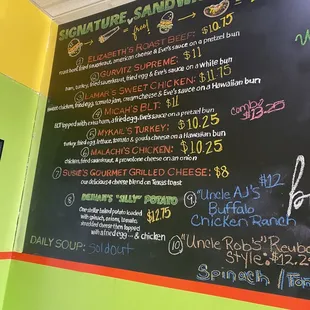 SIGNATURE SANDW
= free!
① ELIZABETH'S ROAST BEEF: $10.75
roast beef, fried sauerkraut, american cheese & Eve's sauce on a pretzel bun
② GURVITZ SUPREME: $11
turkey, fried sauerkraut, fried egg & Eve's sauce on a white bun
③ LAMAR'S SWEET CHICKEN: $11.75
sweet chicken, fried egg, tomato jam, cream cheese & Eve's sauce on a Hawaiian bun
④ MICAH'S BLT: $11
BLT topped with fried egg & Eve's sauce on a pretzel bun
combo
$13.25
⑤ MYKAIL'S TURKEY: $10.25
turkey, fried egg, lettuce, tomato & gouda cheese on a Hawaiian bun
⑥ MALACHI'S CHICKEN: $10.25
chicken, fried sauerkraut, & provolone cheese on an onion
⑦ SUSIE'S GOURMET GRILLED CHEESE: $8
our delicious 4 cheese blend on Texas toast
⑧ "SILLY" POTATO
$12.75
One stellar baked potato loaded
with onions, tomato,
shredded cheese then topped
with a fried egg & chicken
⑨ "Uncle AJ's $12
Buffalo
Chicken Ranch
⑩ "Uncle Rob's" Reub
Style: $12.2
Spinach / To
DAILY SOUP: Soldout